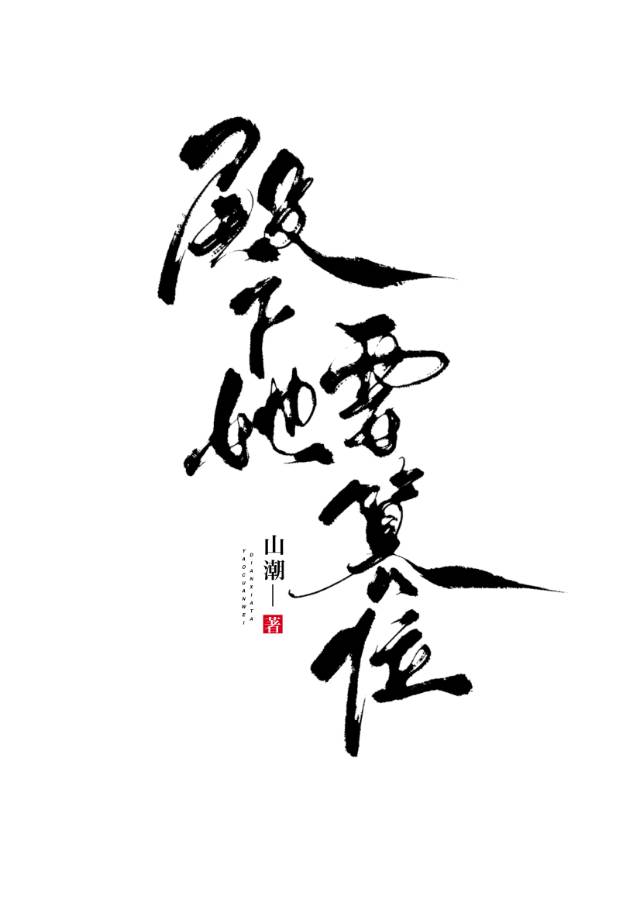 殿下她
要篡位
山潮—著
DIANXIATA
YAOCUANWEI